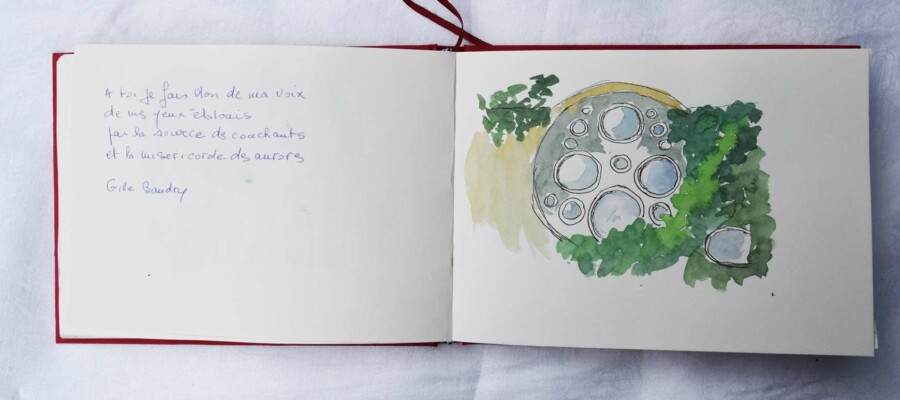 A toi je fais don de ma voix
de mes yeux éblouis
par la source des couchants
et la misericorde des aurores
Gile Baudry